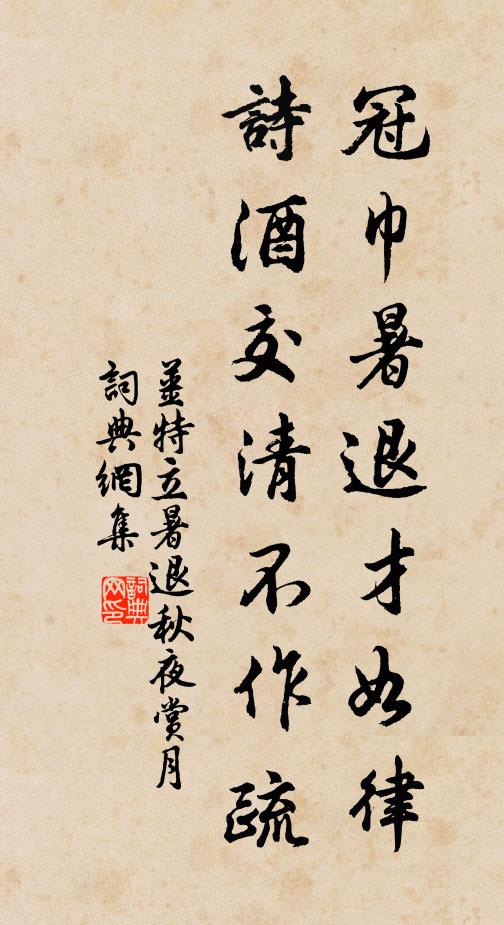 冠巾暑退才如律
詩酒交清不作疏
薑特立暑退秋夜賞月
詞典網集
詞典
网印